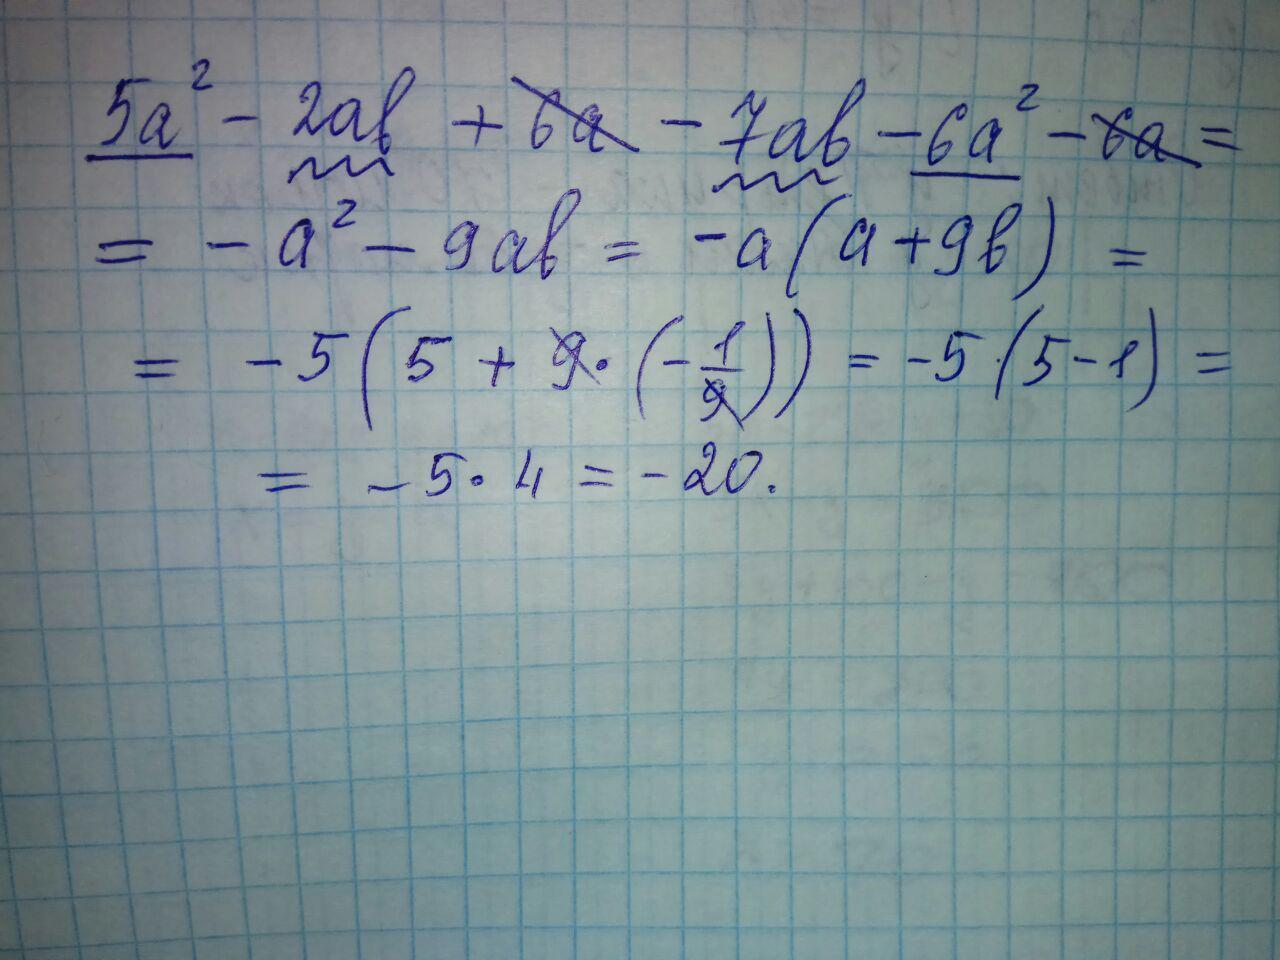 5a² - 2ab + 6a - 7ab - 6a² - 6a =
= - a² - 9ab = -a(a+9b) =
= -5(5 + 9·(-1/9)) = -5·(5-1) =
= -5·4 = -20.